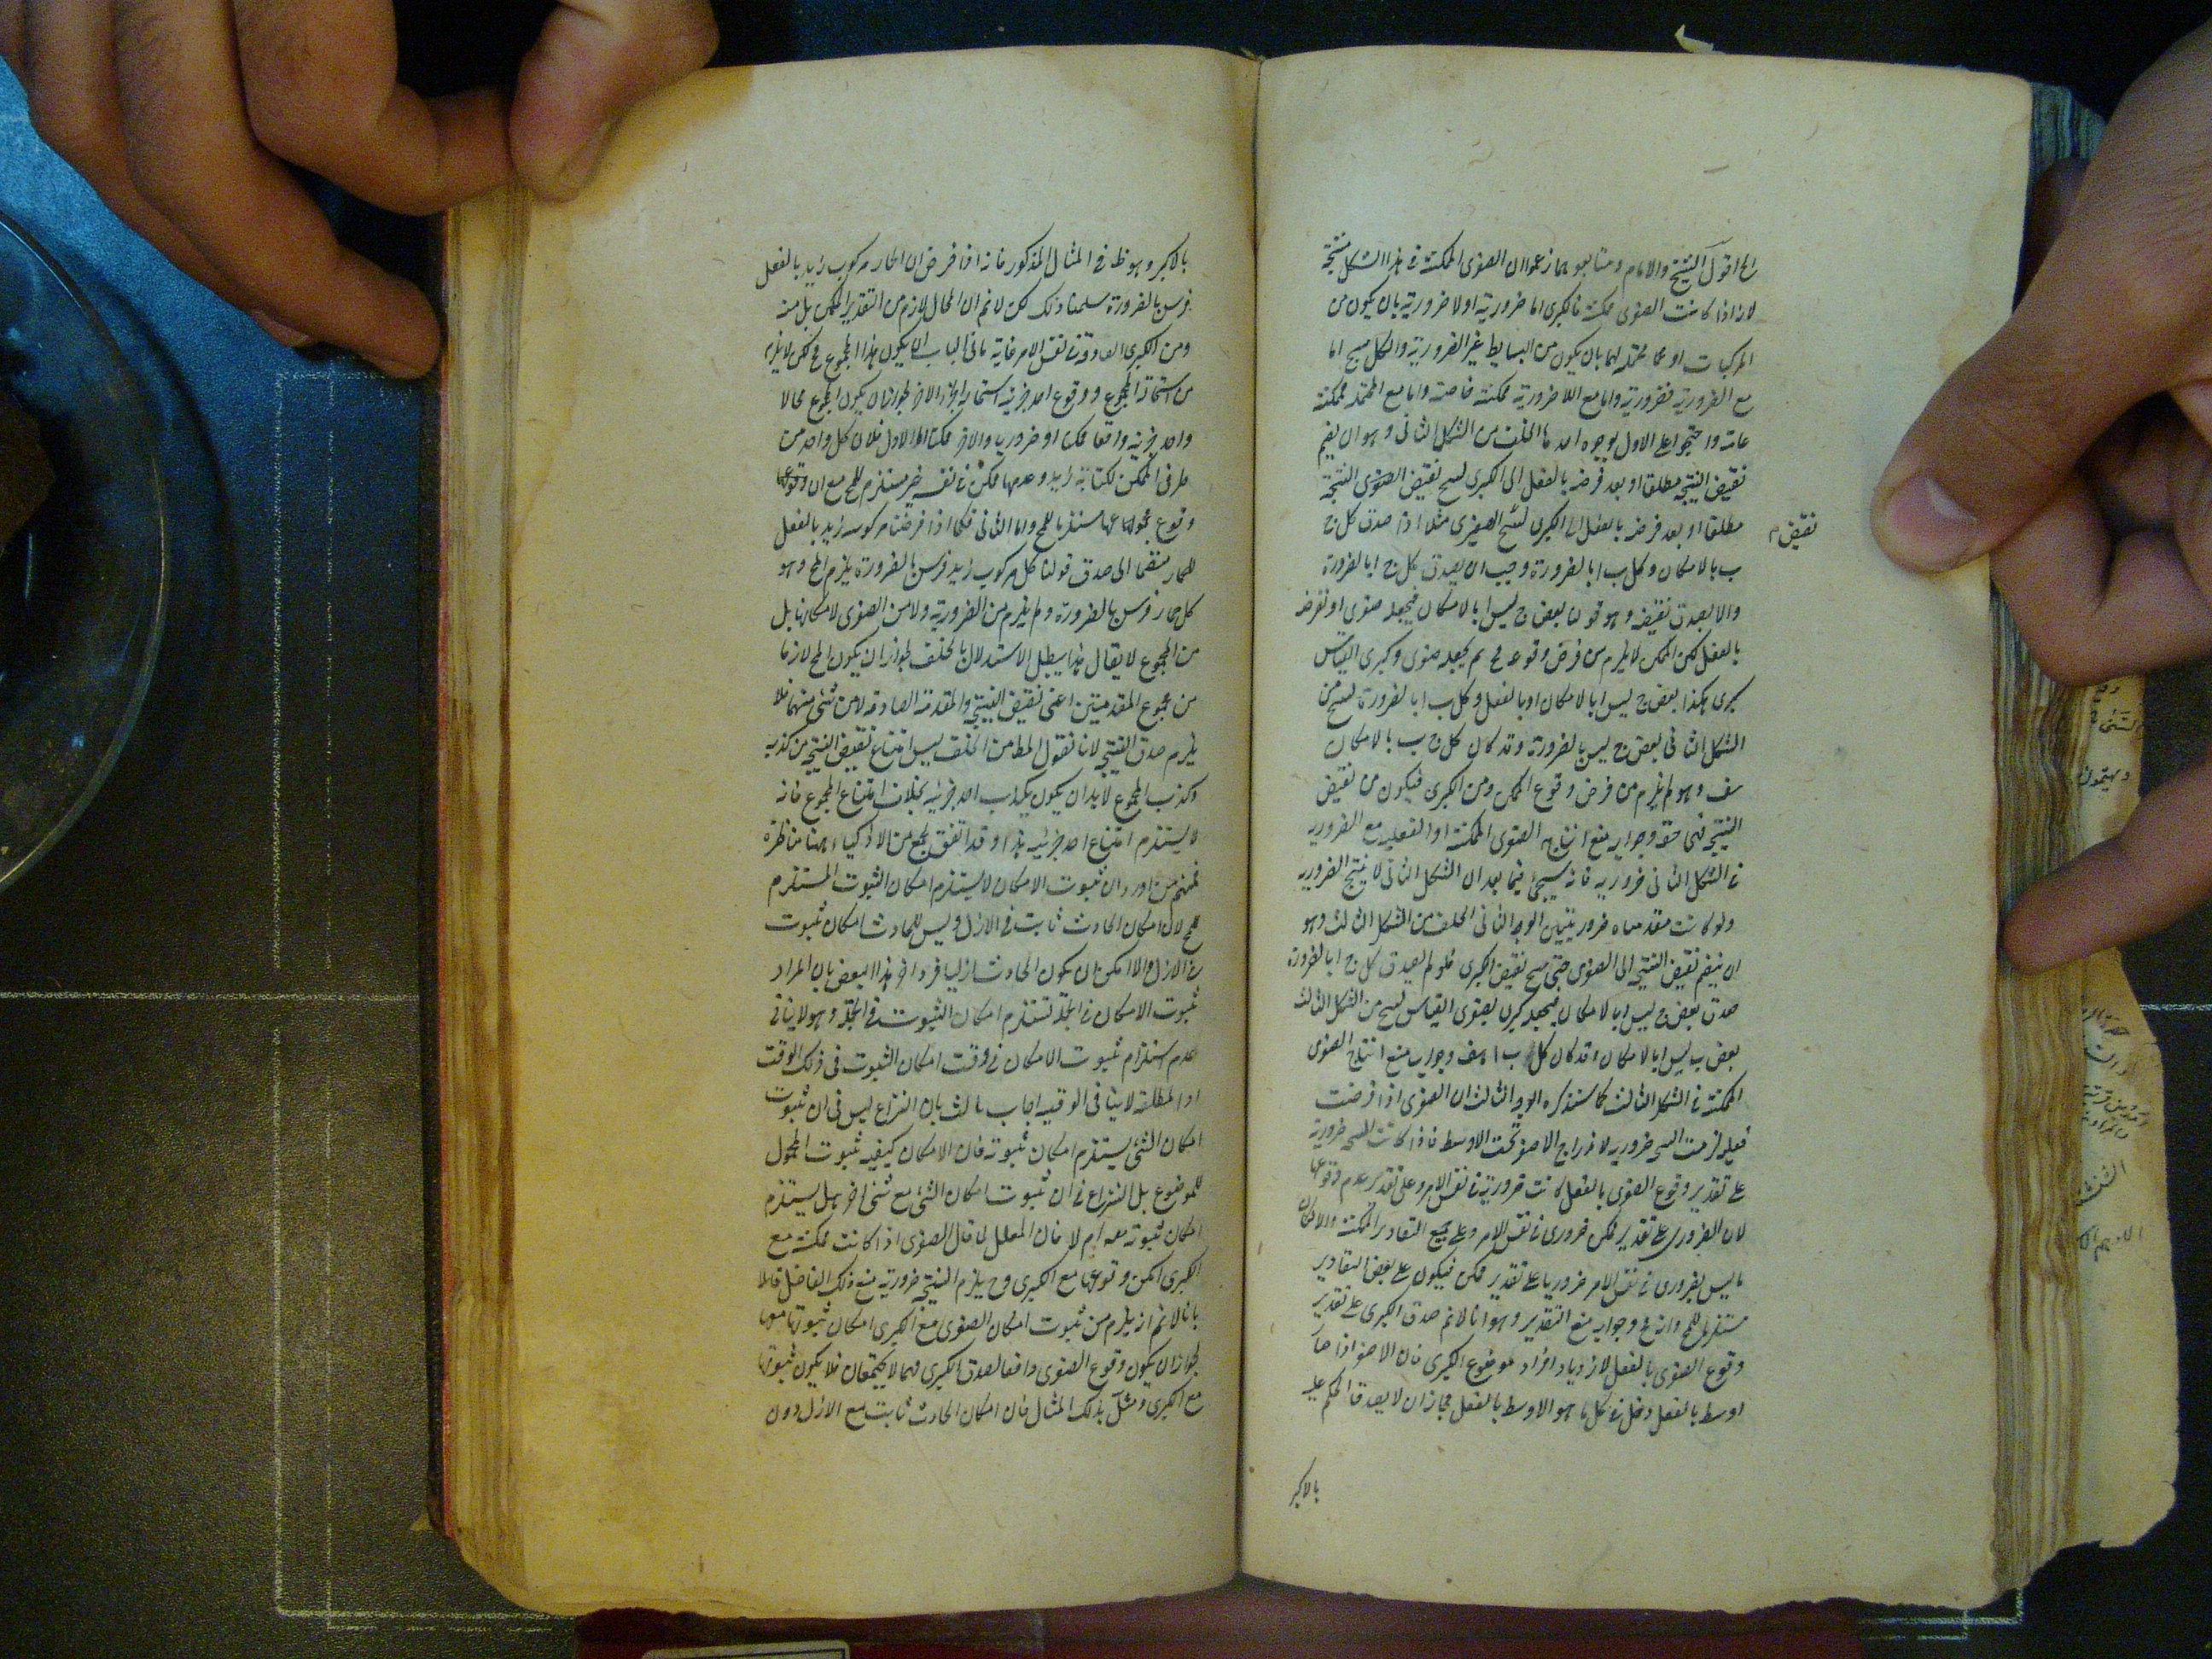 الخ اقول الشيخ والامام ومتابعوهما زعموا ان الصغرى الممكنة فى هذا الشكل منتجة
لانه اذا كانت الصغرى ممكنة فالكبرى اما ضرورية او لا ضرورية بان يكون من
المركبات او مما تحتملهما بان يكون من البسايط غير الضرورية والكل ينتج اما
مع الضرورية فضرورية واما مع اللاضرورية ممكنة خاصة واما مع المحتمله ممكنة
عامة واحتجوا على الاول بوجوه احدها الخلف من الشكل الثانى وهو ان يضم
نقيض النتيجة مطلقا او بعد فرضه بالفعل الى الكبرى لينتج نقيض الصغرى النتيجة
مطلقا او بعد فرضه بالفعل الى الكبرى لينتج الصغرى مثلا اذا صدق كل ج
نقيض م
ب بالامكان وكل ب ا بالضرورة وجب ان يصدق كل ج ا بالضرورة
والا يصدق نقيضه وهو قولنا بعض ج ليس ا بالامكان فيجعله صغرى او نفرضه
بالفعل لكون الممكن لا يلزم من فرض وقوعه مح ثم نجعله صغرى وكبرى القياس
كبرى هكذا بعض ج ليس ا بالامكان او بالفعل وكل ب ا بالضرورة ينتج من
الشكل الثانى بعض ج ليس ب بالضرورة وقد كان كل ج ب بالامكان
هف وهو لم يلزم من فرض وقوع الممكن ومن الكبرى فيكون من نقيض
النتيجة فهى حقة وجوابه منع انتاج الصغرى الممكنة او الفعلية مع الضرورية
فى الشكل الثانى ضرورية فانه سيجئ فيما بعد ان الشكل الثانى لا ينتج الضرورية
ولو كانت مقدمتاه ضروريتين الوجه الثانى الخلف من الشكل الثالث وهو
ان يضم نقيض النتيجة الى الصغرى حتى ينتج نقيض الكبرى فلو لم يصدق كل ج ا بالضرورة
صدق بعض ج ليس ا بالامكان فنجعله كبرى لصغرى القياس لينتج من الشكل الثالث
بعض ب ليس ا بالامكان وقد كان كل ب ا هف وجوابه منع انتاج الصغرى
الممكنة فى الشكل الثالث كما سنذكره الوجه الثالث ان الصغرى اذا فرضت
فعلية لزمت النتيجة ضرورية لاندراج الاصغر تحت الاوسط فاذا كانت النتيجة ضرورية
على تقدير وقوع الصغرى بالفعل كانت ضرورية فى نفس الامر وعلى تقدير عدم وقوعها
لان الضرورى على تقدير ممكن ضرورى فى نفس الامر وعلى جميع التقادير الممكنة والا لكان
ما ليس بضرورى فى نفس الامر ضروريا على تقدير ممكن فيكون على بعض التقادير
مستلزما للمح وانه مح وجوابه منع التقدير وهو انا لا نم صدق الكبرى على تقدير
وقوع الصغرى بالفعل لازدياد افراد موضوع الكبرى فان الاصغر اذا صار
اوسط بالفعل دخل فى كل ما هو الاوسط بالفعل فجاز ان لا يصدق الحكم عليه
بالاكبر
بالاكبر وهو ظ فى المثال المذكور فانه اذا فرض ان الحمار مركوب زيد بالفعل
فرس بالضرورة سلمنا ذلك لكن لا نم ان المحال لازم من التقدير الممكن بل منه
ومن الكبرى الصادقة فى نفس الامر غاية ما فى الباب ان يكون هذا المجموع مح لكن لا يلزم
من استحالة المجموع ووقوع احد جزئيه استحالة الجزء الاخر لجواز ان يكون المجموع محالا
واحد جزئيه واقعا ممكنا او ضروريا والاخر ممكنا اما الاول فلان كل واحد من
طرفى الممكن ككتابة زيد وعدمها ممكن فى نفسه غير مستلزم للمح مع ان وقوعها
وقوع مجموعهما مستلزما للمح واما الثانى فكما اذا فرضنا مركوبية زيد بالفعل
للحمار منضما الى صدق قولنا كل مركوب زيد فرس بالضرورة يلزم المح وهو
كل حمار فرس بالضرورة ولم يلزم من الضرورية ولا من الصغرى لامكانها بل
من المجموع لا يقال هذا يبطل الاستدلال بالخلف لجواز ان يكون المح لازما
من مجموع المقدمتين اعنى نقيض النتيجة والمقدمة الصادقة لا من شئ منهما فلا
يلزم صدق النتيجة لانا نقول المط من الخلف ليس امتناع نقيض النتيجة بل كذبه
وكذب المجموع لا بد ان يكون بكذب احد جزئيه بخلاف امتناع المجموع فانه
لا يستلزم امتناع احد جزئيه هذا وقد اتفق لجمع من الاذكياء ههنا مناظرة
فمنهم من اورد ان ثبوت الامكان لا يستلزم امكان الثبوت المستلزم
للمح لان امكان الحادث ثابت فى الازل وليس للحادث امكان ثبوت
فى الازل والا امكن ان يكون الحادث ازليا فرد اخر هذا البعض بان المراد
ثبوت الامكان فى الجملة تستلزم امكان الثبوت فى الجملة وهو لا ينافى
عدم استلزام ثبوت الامكان فى وقت امكان الثبوت فى ذلك الوقت
اذ المطلقة لا ينافى الوقتية اجاب ثالث بان النزاع ليس فى ان ثبوت
امكان الشئ يستلزم امكان ثبوته فان الامكان كيفية ثبوت المحمول
للموضوع بل النزاع فى ان ثبوت امكان الشئ مع شئ اخر هل يستلزم
امكان ثبوته معه ام لا فان المعلل لما قال الصغرى اذا كانت ممكنة مع
الكبرى امكن وقوعها مع الكبرى وح يلزم النتيجة ضرورية منع ذلك الفاضل قائلا
بانا لا نم انه يلزم من ثبوت امكان الصغرى مع الكبرى امكان ثبوتها معها
لجواز ان يكون وقوع الصغرى رافعا لصدق الكبرى فهما لا يجتمعان فلا يكون ثبوتها
مع الكبرى ومثل بذلك المثال فان امكان الحادث ثابت مع الازل دون